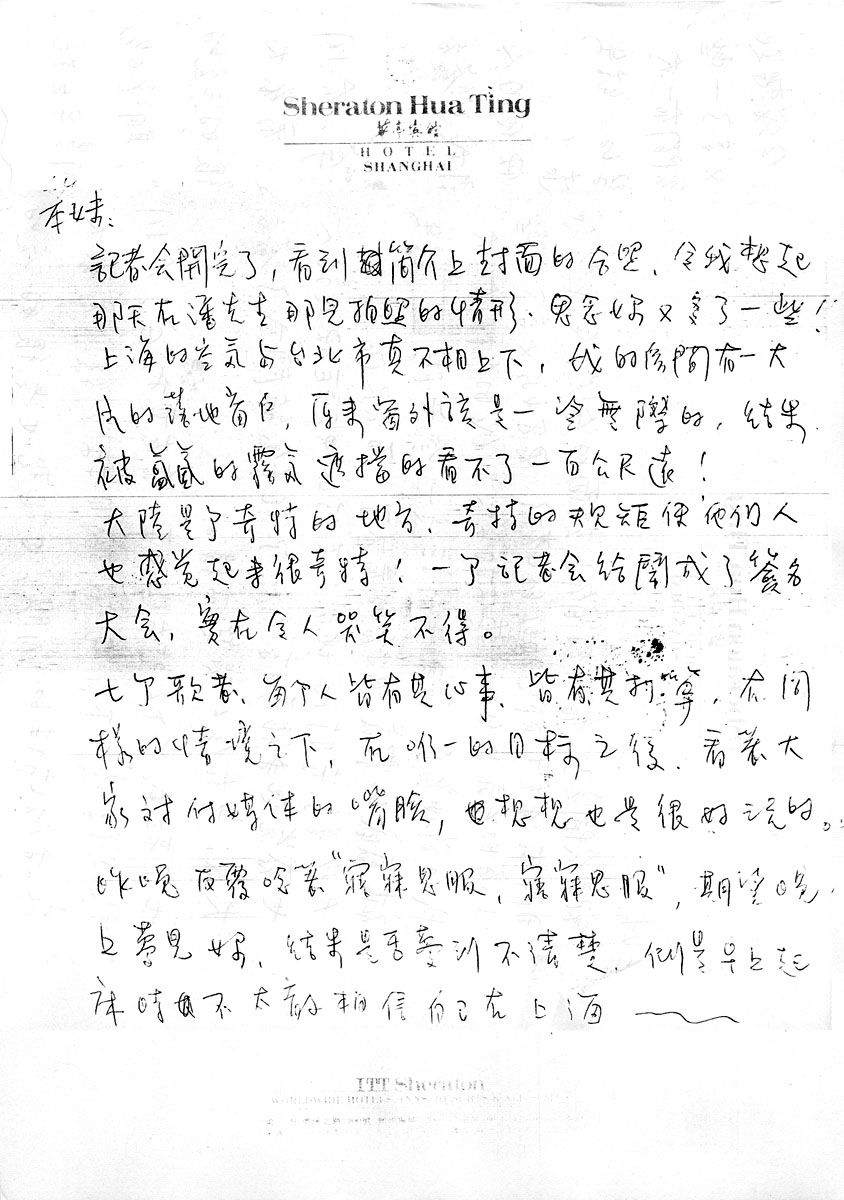 Sheraton Hua Ting
華亭賓館
HOTEL
SHANGHAI
本妹：
記者会開完了，看到簡介上封面的合照、令我想起
那天在潘先生那兒拍照的情形、思念妳又多了一些！
上海的空氣与台北市真不相上下，我的房間有一大
片的落地窗户，原来窗外該是一望無際的，結果
被氤氳的霧気遮擋的看不了一百公尺遠！
大陸是个奇特的地方、奇特的規矩使他们人
也感觉起来很奇特！一个記者会給鬧成了簽名
大会，實在令人哭笑不得。
七个歌者、每个人皆有其心事、皆有其打算，在同
樣的情境之下，在唯一的目標之後、看著大
家对付媒体的嘴臉，想想也是很好玩的。
昨晚反覆唸著“寤寐思服，寤寐思服”，期望晚
上夢見妳、結果是否夢到不清楚、倒是早上起
床時不太敢相信自己在上海
ITT Sheraton